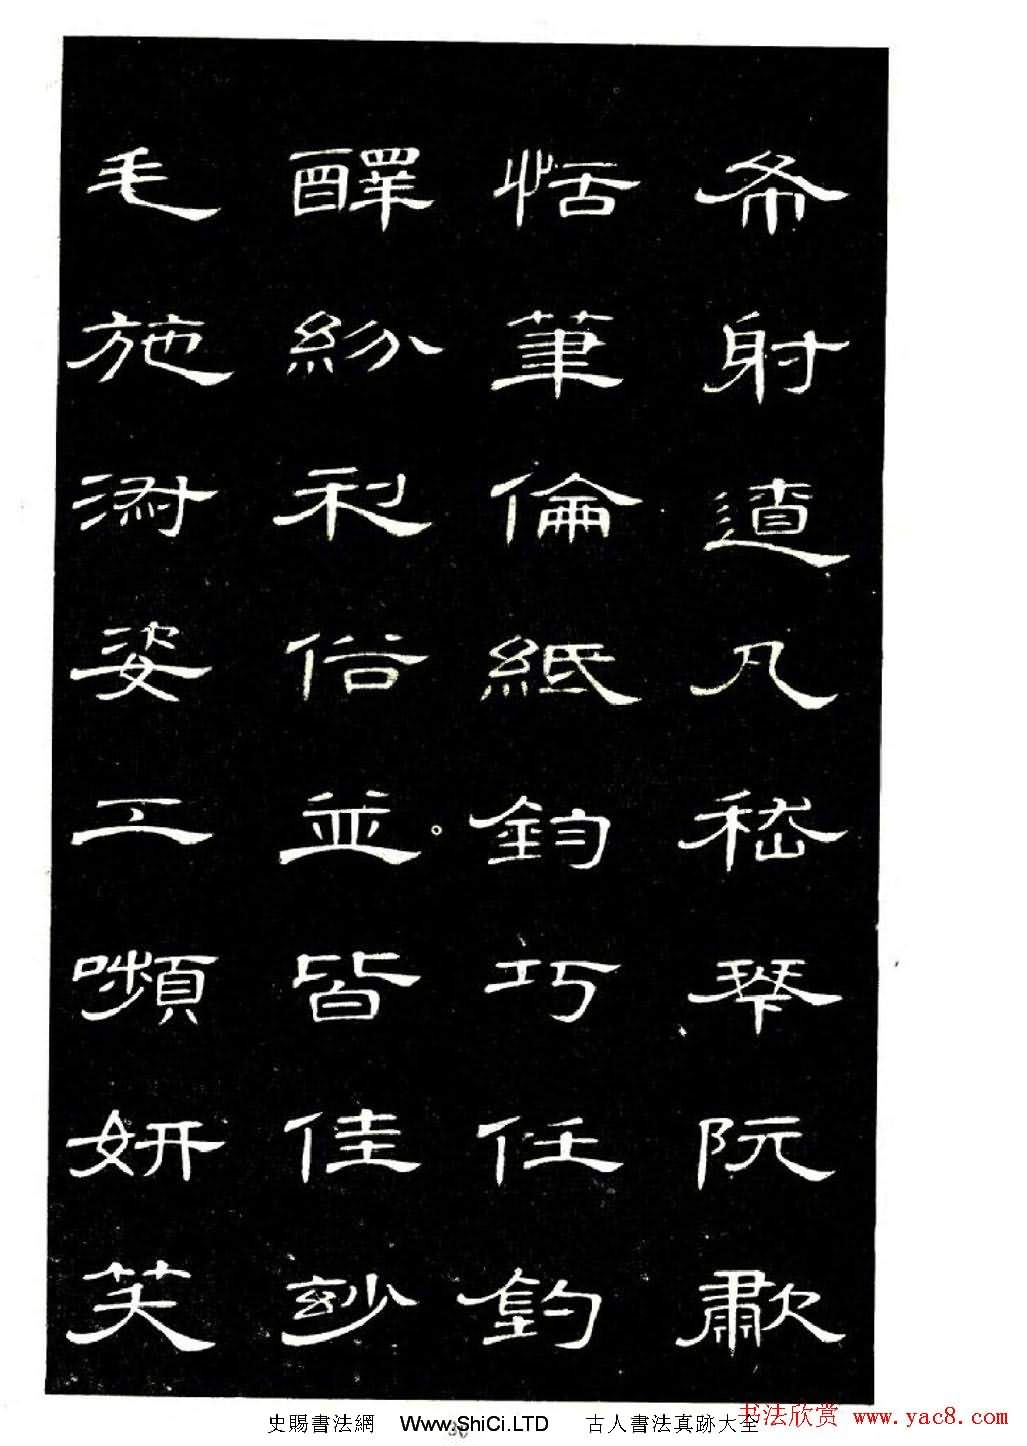 布射遼丸嵇琴阮歗
恬筆倫紙鈞巧任釣
釋紛利俗並皆佳妙
毛施淑姿工嚬妍笑
史賜書法網 Www.ShiCi.LTD 古人書法真跡大全
书法欣赏 www.yac8.com